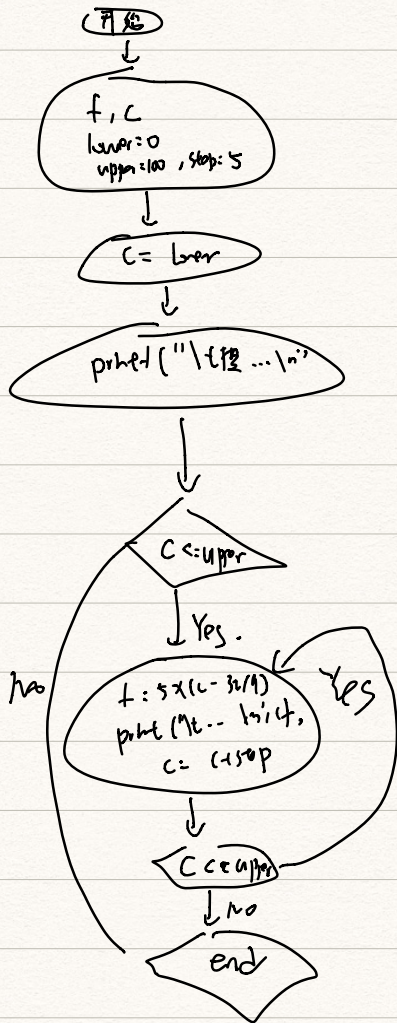 开始
f, c
lower=0
upper=100, step=5
C = lower
printf("\t摄...\n"
C <= upper
Yes.
No
Yes
f = 5x(c-32/9)
print("\t... \n",cf,
C = c+step
C <= upper
No
end